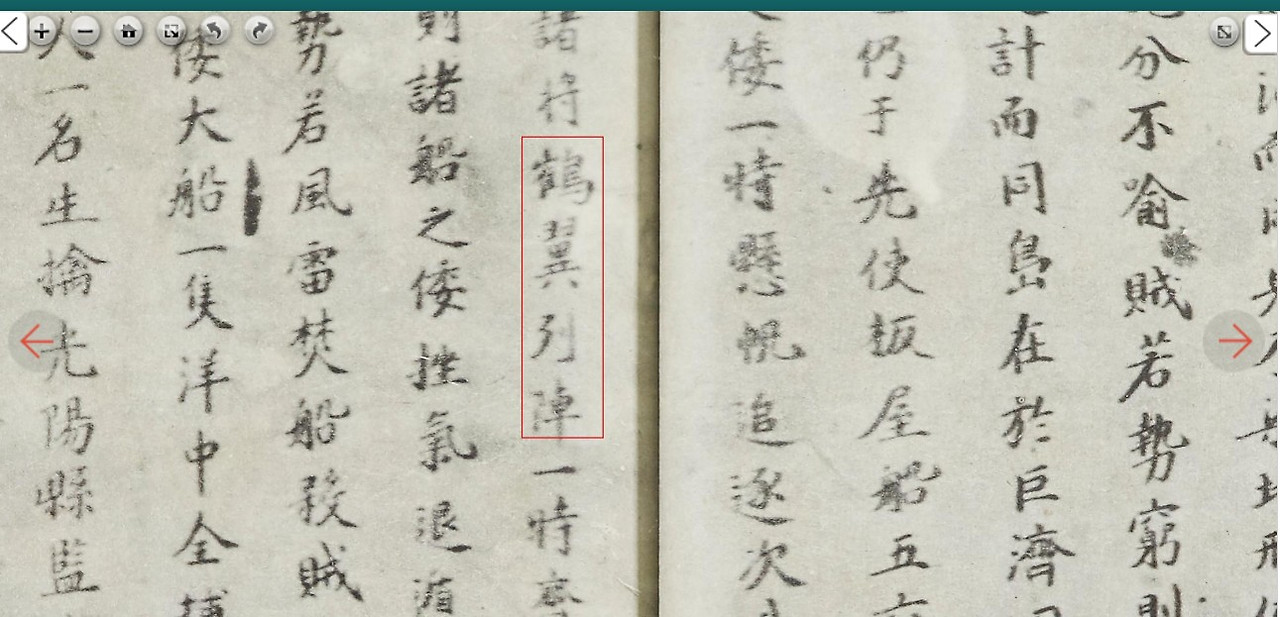 分不喻賊若勢窮則
計而同島在於巨濟
仍于先使板屋船五
倭一時懸帆追逐次
諸將鶴翼列陣一時齊
則諸船之倭挫氣退遁
勢若風雷焚船殺賊
倭大船一隻洋中全捕
人一名生擒光陽縣監